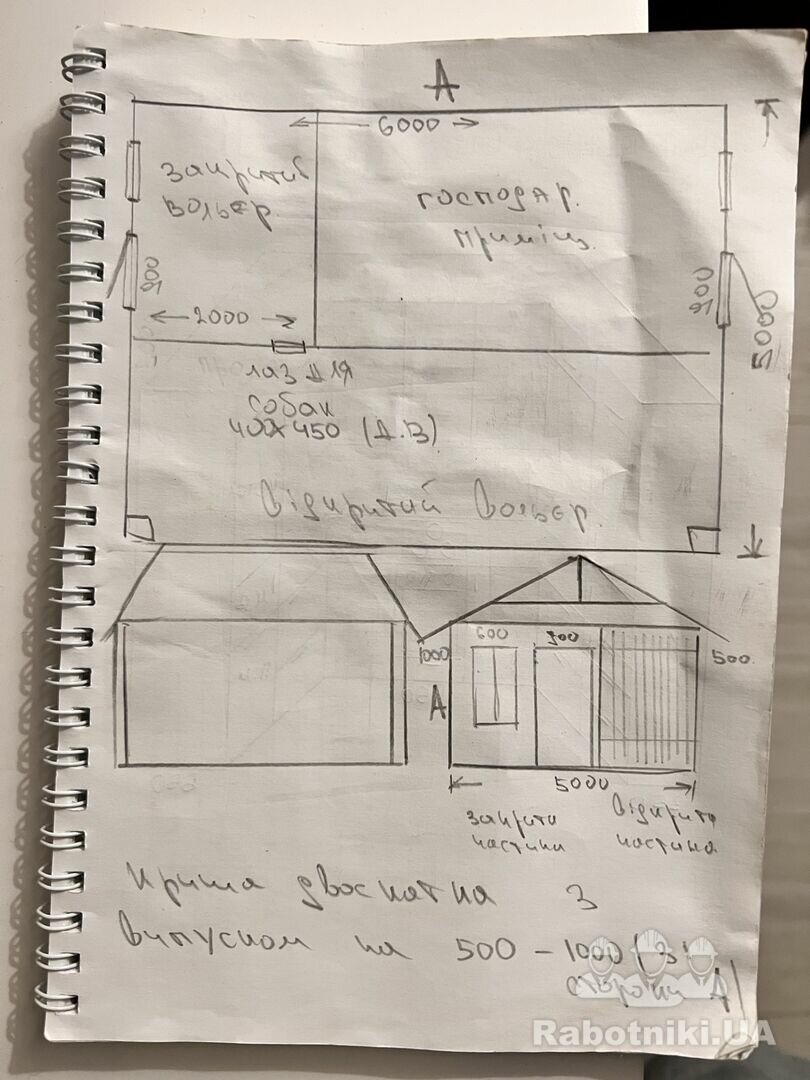 А
6000
закритий
вольєр.
господар.
приміщ.
900
900
5000
2000
лаз для
собак
400х450 (Д.В)
відкритий вольєр.
600
900
1000
500
А
5000
закрита
частина
відкрита
частина
криша двоскатна з
випуском на 500 - 1000 (зі
сторони А)
Rabotniki.UA